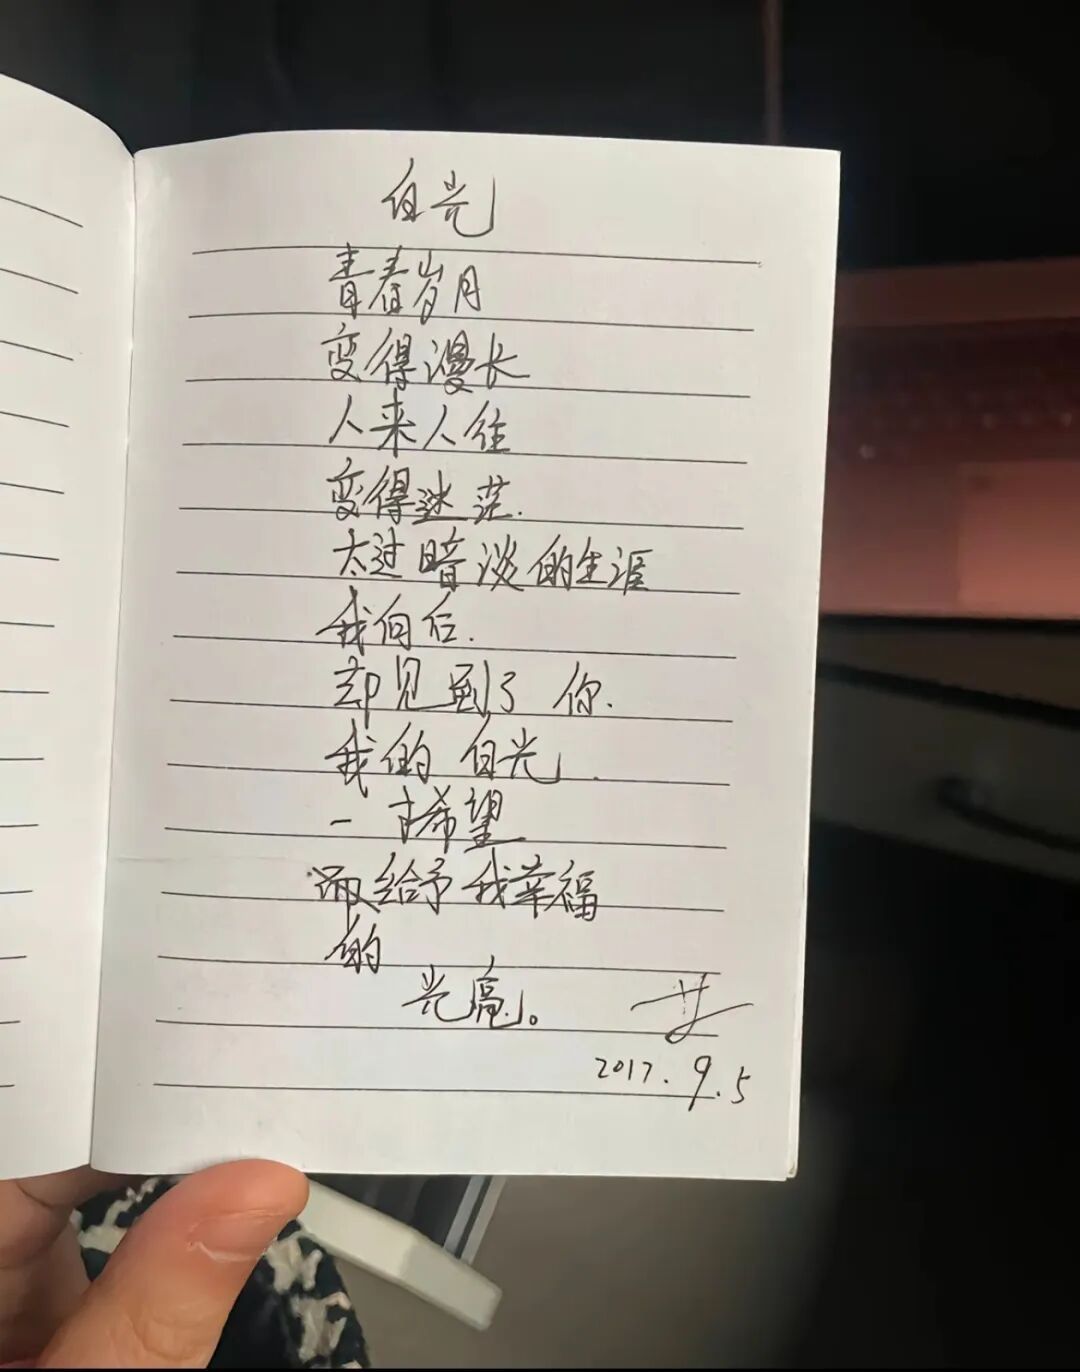 白光
青春岁月
变得漫长
人来人往
变得迷茫.
太过暗淡的生涯
我向后.
却见到了 你.
我的 白光.
一 希望
给予我幸福
的
光亮。
2017.9.5